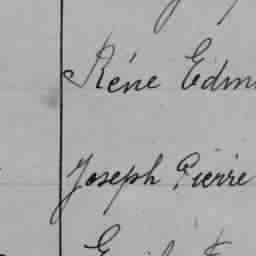 Réne Edm
Joseph Pierre